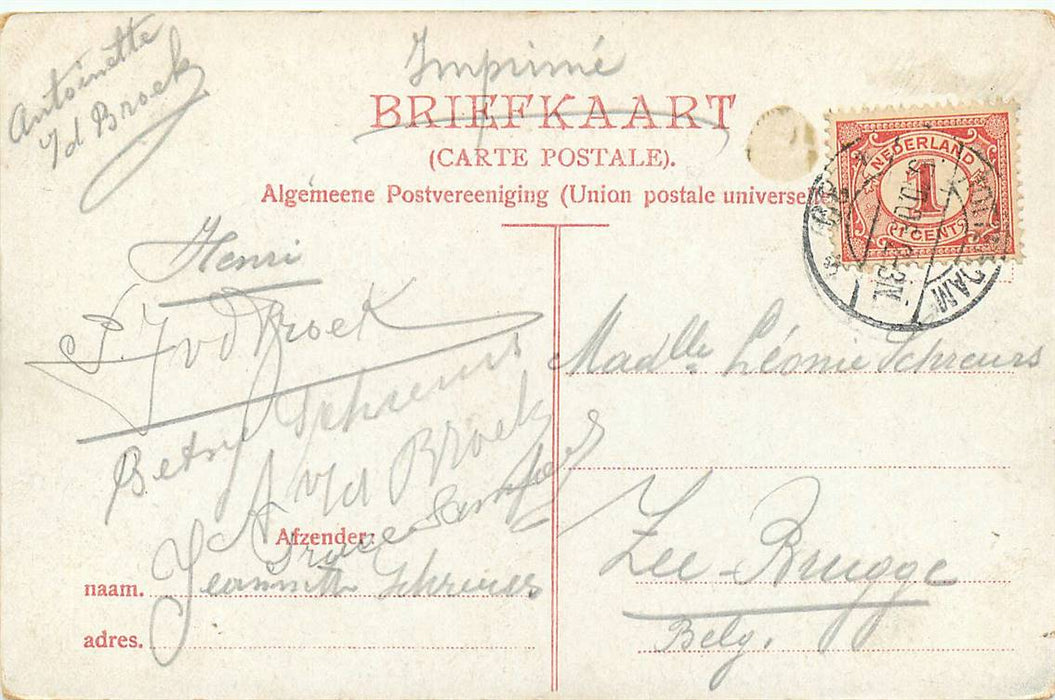 Antoinette
v/d Broek
Imprimé
BRIEFKAART
(CARTE POSTALE).
Algemeene Postvereeniging (Union postale universelle)
NEDERLAND
1
1 CENT
DAM
Henri
J. v d Broek
Betsy Schreurs
A v/d Broek
Afzender:
naam. Jeannette Schreurs
adres.
Madlle Léonie Schreurs
Zee-Brugge
Belg.